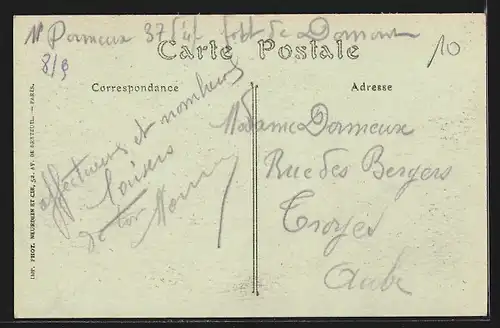 Mr Dormeux 37e d'inf fort de Domont
8/9
10
Carte Postale
Correspondance
Adresse
affectueux et nombreux
baisers
de ton
Madame Dormeux
Rue des Bergers
Troyes
Aube
IMP. PHOT. NEURDEIN ET CIE, 52, AV. DE BRETEUIL. — PARIS.